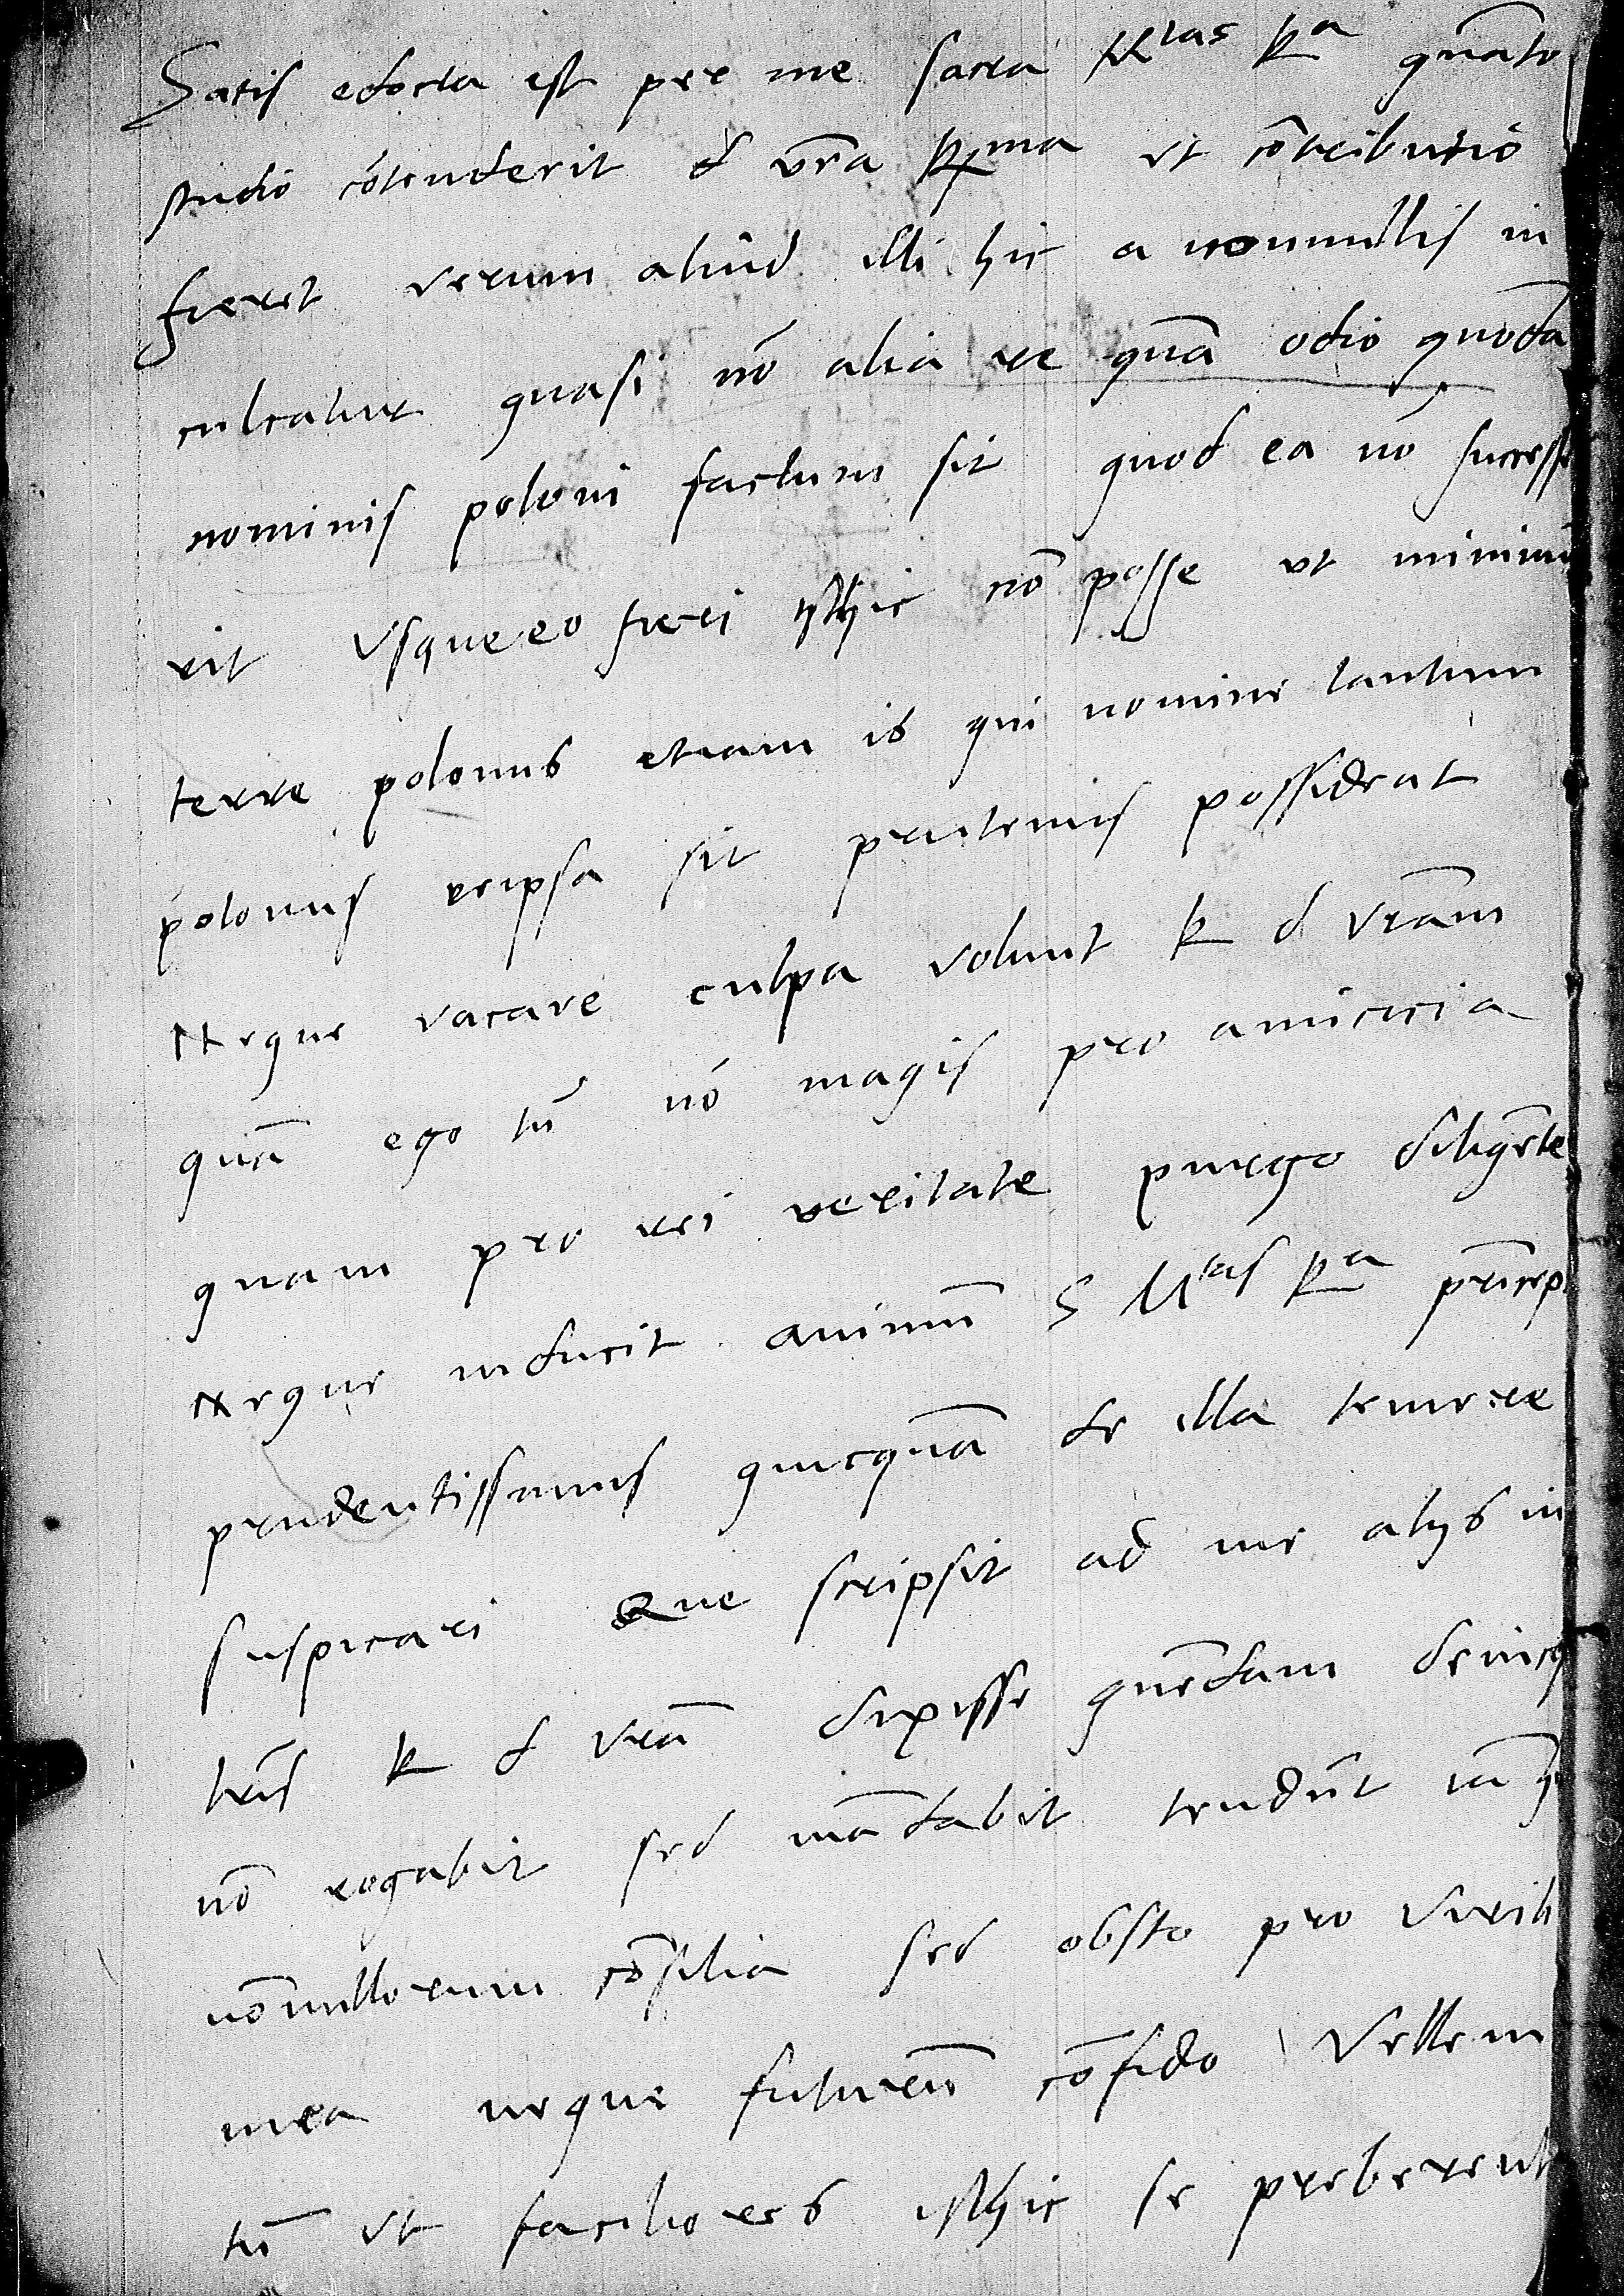 Satis edocta est per me sacra M^tas R^a quāto
studio cōtenderit d vr̄a R^ma vt cōtributio
fieret verum aliud illi hic a nonnullis in
culcatur quasi nō alia re quā odio quodā
nominis poloni factum sit quod ea nō successe
rit Vsqueeo fieri isthic nō posse vt minimū
terre polonus etiam is qui nomine tantum
polonus reipsa sit prutenus possideat
Neque vacare culpa volunt R d vrām
quā ego tn̄ nō magis pro amicicia
quam pro rei veritate purgo diligēte
Neque inducit animū S M^tas R^a prīcep
prudentissimus quicquā de illa temere
suspicari Que scripsit ad me alijs in
lr̄is R d vrā dixisse quēdam deinceps
nō rogabit sed mādabit tendūt iā
nōnullorum cōsilia sed obsto pro virili
mea neque futurū cōfido Vellem
tn̄ vt faciliores isthic se preberent